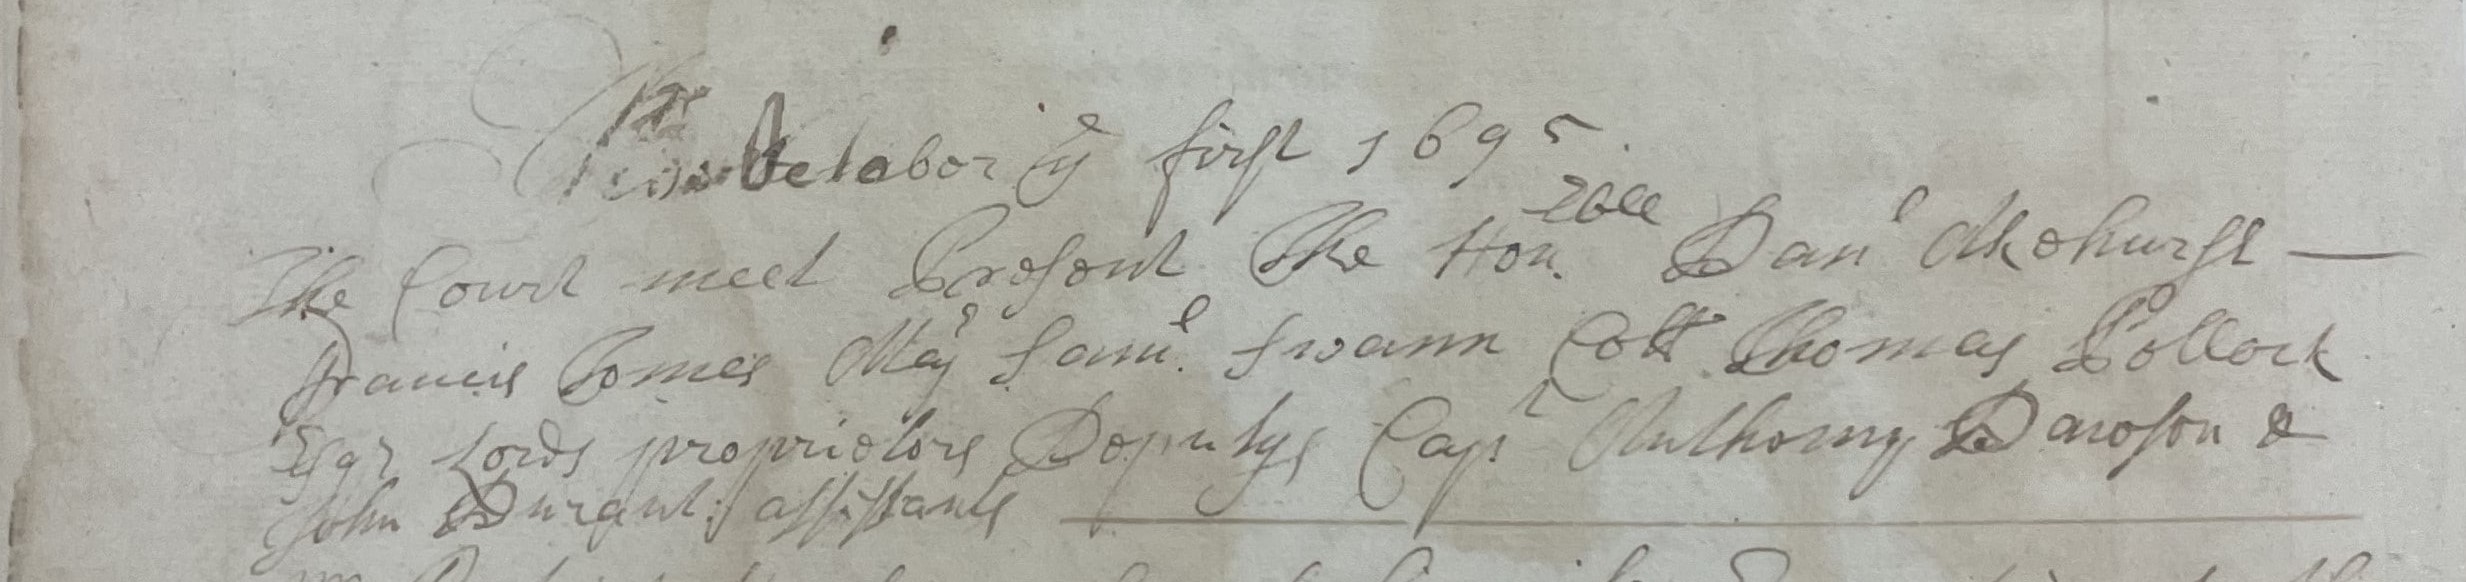 October ye first 1695.
The Court meet Present The Hon.ble Danl Akehurst —
Francis Tomes Majr Saml. Swann Coll Thomas Pollock
Esqr Lords proprietors Deputys Capt Anthony Dawson &
John Durant: assistants